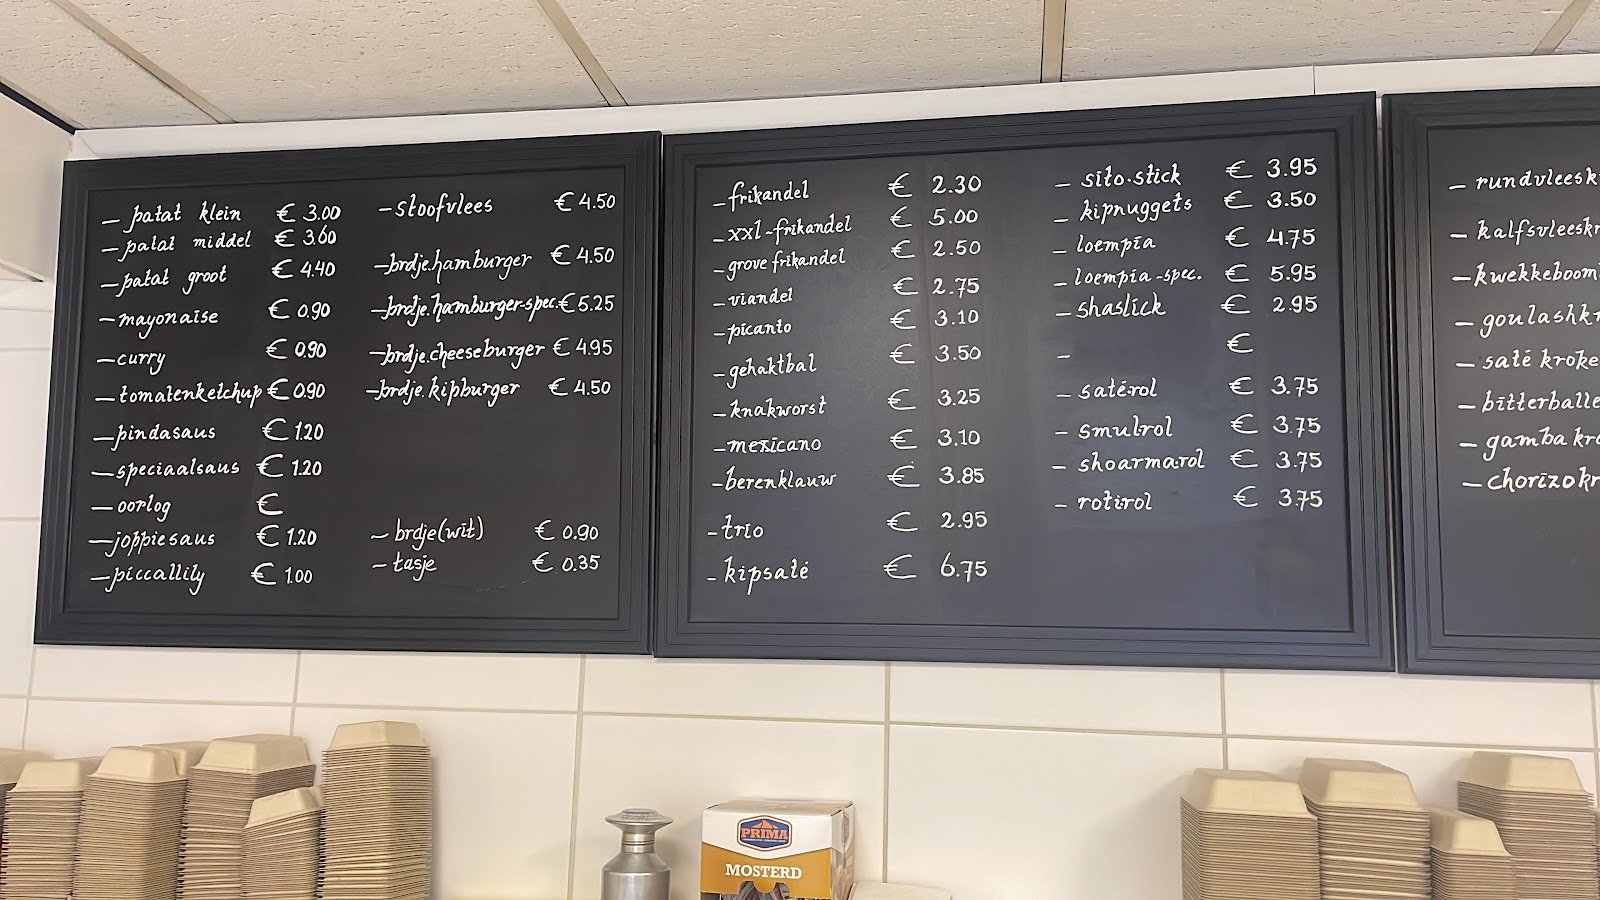 - patat klein € 3.00
- patat middel € 3.60
- patat groot € 4.40
- mayonaise € 0.90
- curry € 0.90
- tomatenketchup € 0.90
- pindasaus € 1.20
- speciaalsaus € 1.20
- oorlog €
- joppiesaus € 1.20
- piccallily € 1.00
- stoofvlees € 4.50
- brdje.hamburger € 4.50
- brdje.hamburger-spec. € 5.25
- brdje.cheeseburger € 4.95
- brdje.kipburger € 4.50
- brdje(wit) € 0.90
- tasje € 0.35
- frikandel € 2.30
- xxl-frikandel € 5.00
- grove frikandel € 2.50
- viandel € 2.75
- picanto € 3.10
- gehaktbal € 3.50
- knakworst € 3.25
- mexicano € 3.10
- berenklauw € 3.85
- trio € 2.95
- kipsaté € 6.75
- sito.stick € 3.95
- kipnuggets € 3.50
- loempia € 4.75
- loempia-spec. € 5.95
- shaslick € 2.95
- €
- satérol € 3.75
- smulrol € 3.75
- shoarma.rol € 3.75
- rotirol € 3.75
- rundvleesk
- kalfsvleeskr
- kwekkeboom
- goulashkr
- saté kroke
- bitterballe
- gamba kro
- chorizo kr
PRIMA
MOSTERD